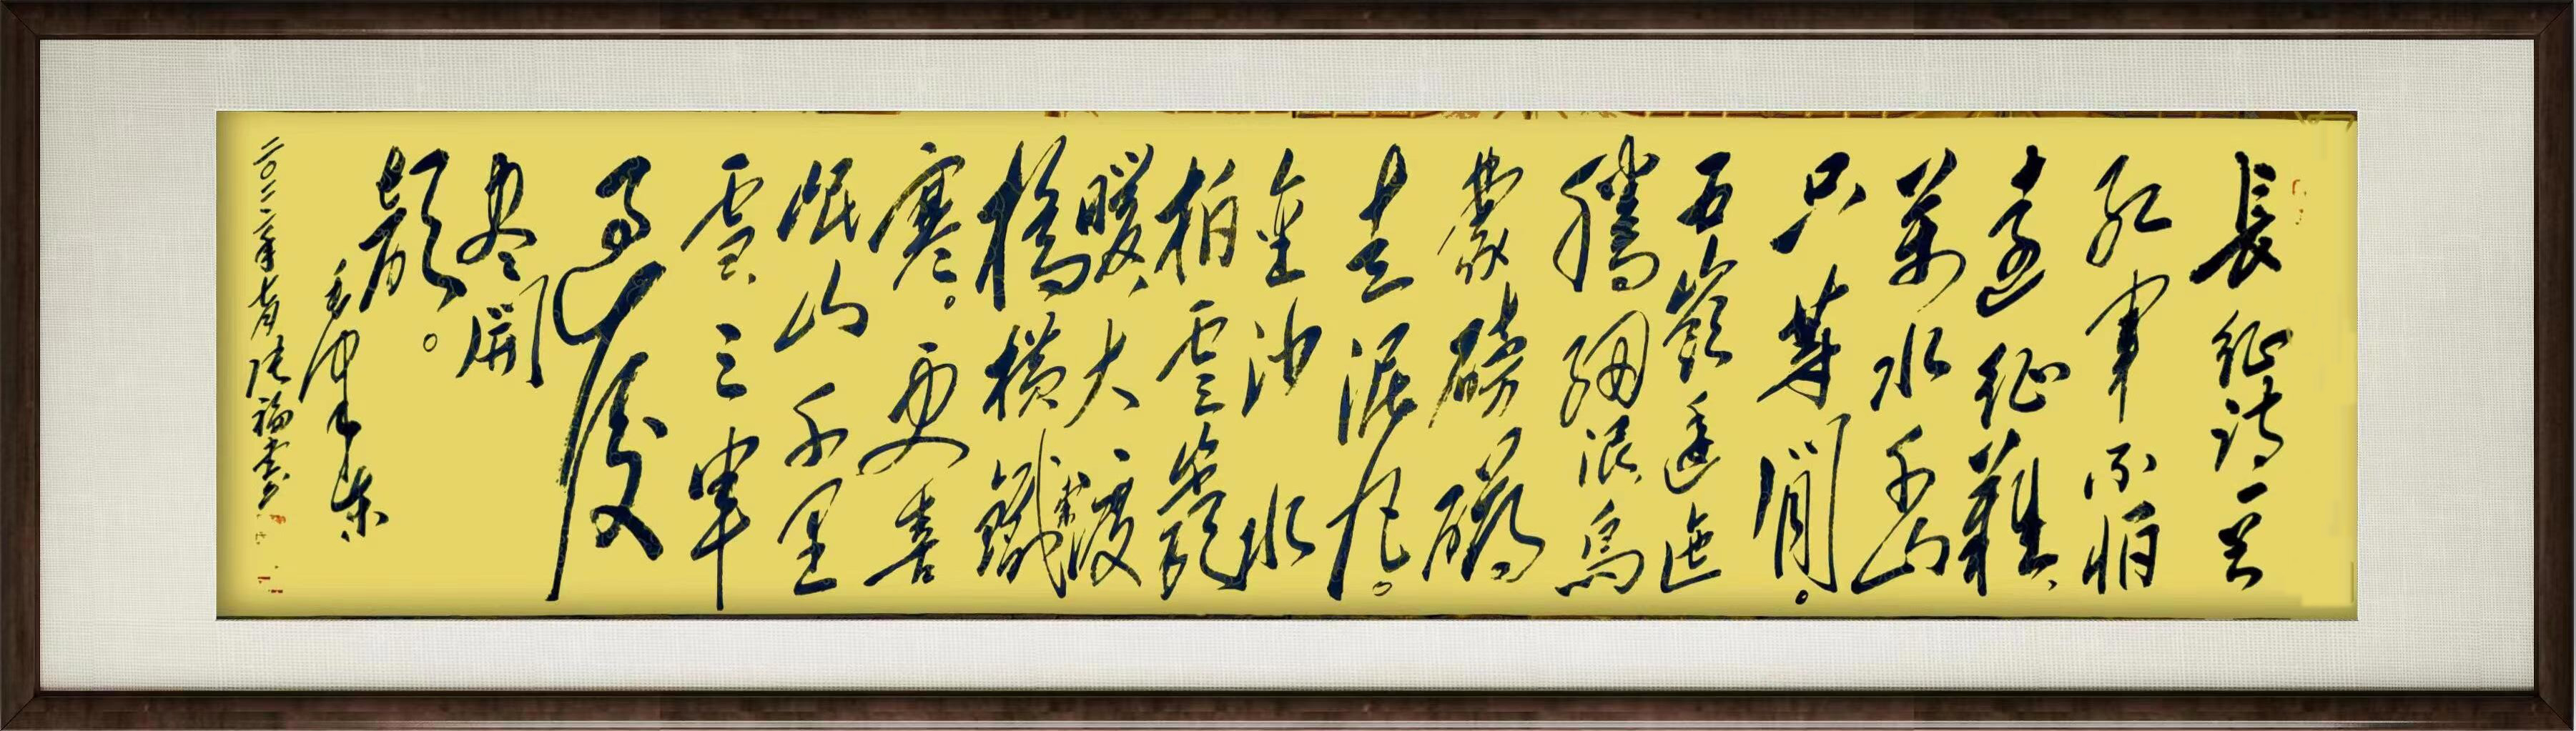 長征詩一首
紅軍不怕
遠征難
萬水千山
只等閒。
五嶺逶迤
騰細浪烏
蒙磅礴
走泥丸。
金沙水
拍雲崖
暖大渡
橋橫鐵索
寒。更喜
岷山千里
雪三軍
過後
尽開
顏。
毛澤東
二〇二二年七月张福书